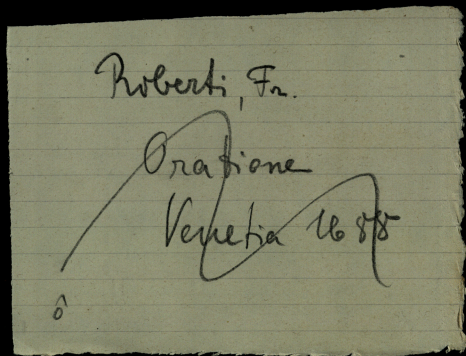 Roberti, Fr.
Oratione
Venetia 1688
ô